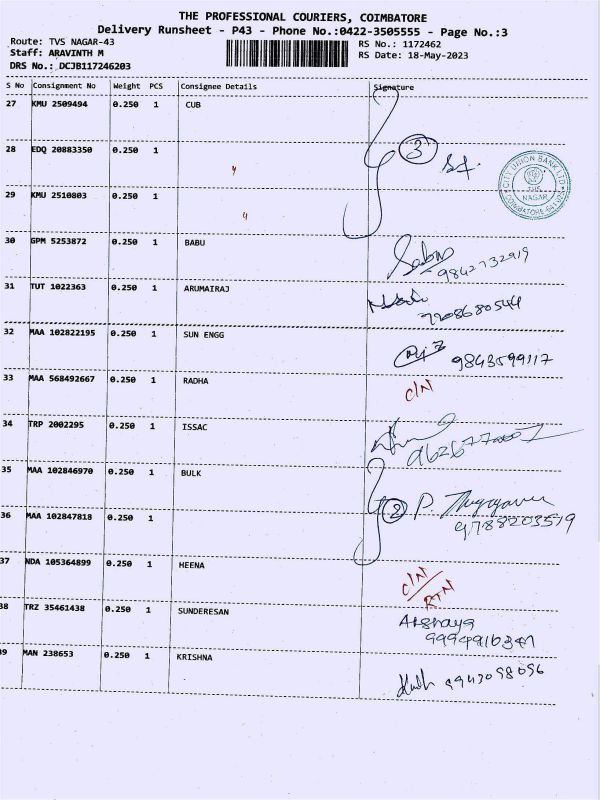 THE PROFESSIONAL COURIERS, COIMBATORE
Delivery Runsheet - P43 - Phone No.:0422-3505555 - Page No.:3
Route: TVS NAGAR-43 RS No.: 1172462
Staff: ARAVINTH M RS Date: 18-May-2023
DRS No.: DCJB117246203
S No Consignment No Weight PCS Consignee Details Signature
27 KMU 2509494 0.250 1 CUB
28 EDQ 20883350 0.250 1 3
CITY UNION BANK LTD
TVS NAGAR
COIMBATORE
29 KMU 2510803 0.250 1
30 GPM 5253872 0.250 1 BABU
9842732919
31 TUT 1022363 0.250 1 ARUMAIRAJ
7208680544
32 MAA 102822195 0.250 1 SUN ENGG
9843599117
33 MAA 568492667 0.250 1 RADHA C/N
34 TRP 2002295 0.250 1 ISSAC
35 MAA 102846970 0.250 1 BULK
36 MAA 102847818 0.250 1 2 P.
9788203519
37 NDA 105364899 0.250 1 HEENA C/N
RTN
38 TRZ 35461438 0.250 1 SUNDERESAN Akshaya
39 MAN 238653 0.250 1 KRISHNA 9943098096